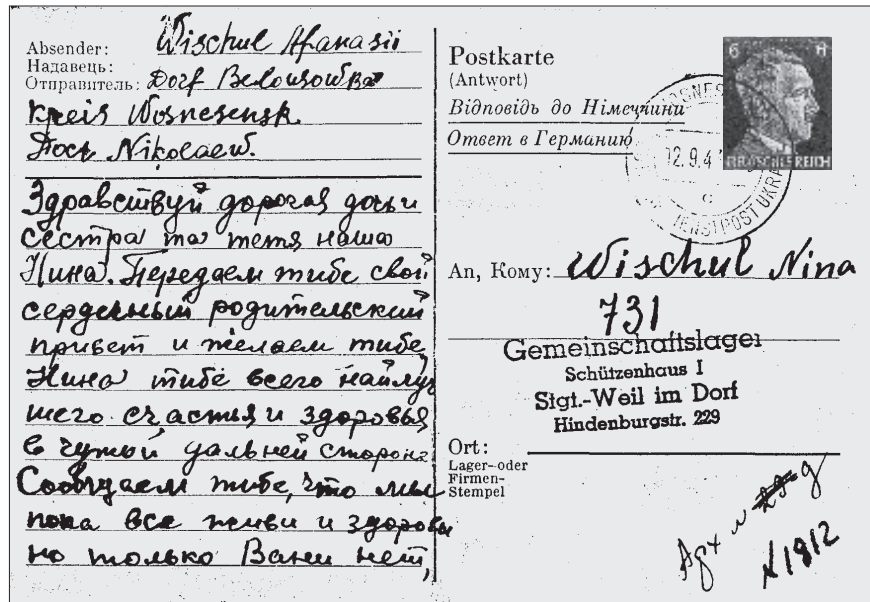 Absender: Wischul Afanasii
Надавець:
Отправитель: Dorf Belousowka
Kreis Wosnesensk.
Nikolaew.
Здравствуй дорогая дочь и
сестра та тетя наша
Нина. Передаем тибе свой
сердечный родительский
привет и желаем тибе
Нина тибе всего найлуч
шего счастья и здоровья
в чужой дальней стороне
Сообщаем тибе, что мы
пока все живи и здоровы
но только Вани нет,
Postkarte
(Antwort)
Відповідь до Німеччини
Ответ в Германию
6
DEUTSCHES REICH
12.9.4
c
DIENSTPOST UKRA
An, Кому: Wischul Nina
731
Gemeinschaftslager
Schützenhaus I
Stgt.-Weil im Dorf
Hindenburgstr. 229
Ort:
Lager- oder
Firmen-
Stempel
N 1812